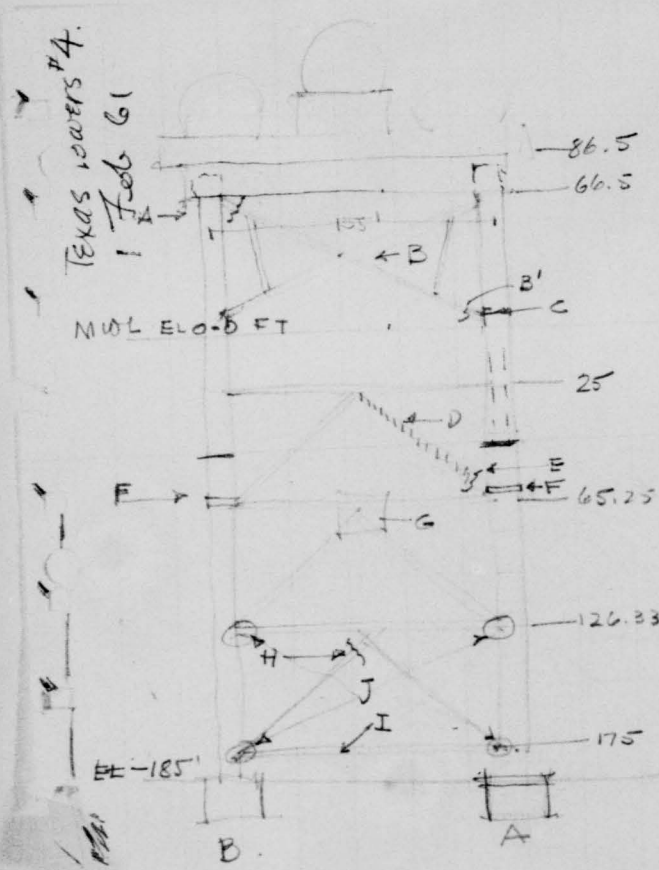 Texas Towers #4.
1 Feb 61
86.5
66.5
A
155'
B
B'
C
MWL EL 0-D FT
25
D
E
F
F
65.25
G
126.33
H
J
I
175
EL -185'
B
A